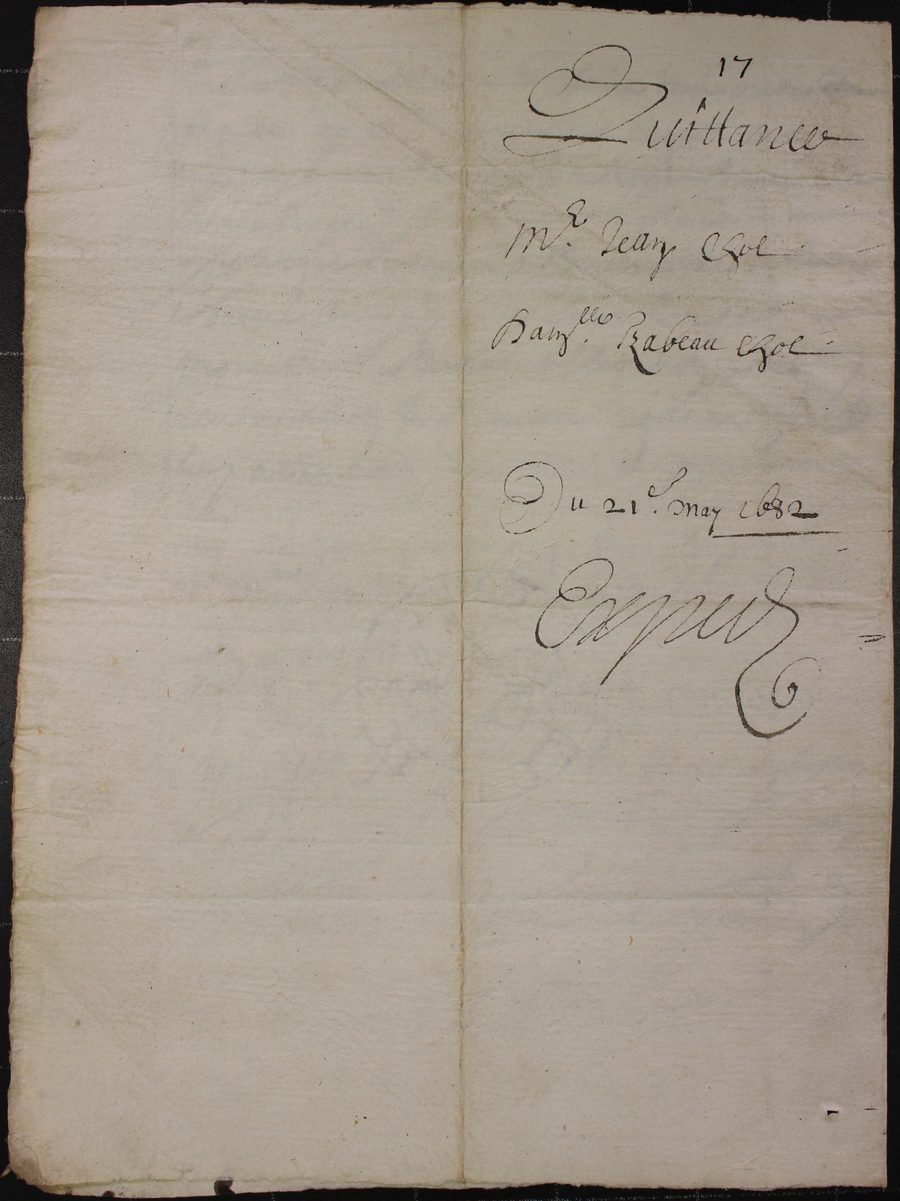 17
Quittance
Mr. Jean Chol
Damlle. Izabeau Chol
Du 21e. May 1682
Exped